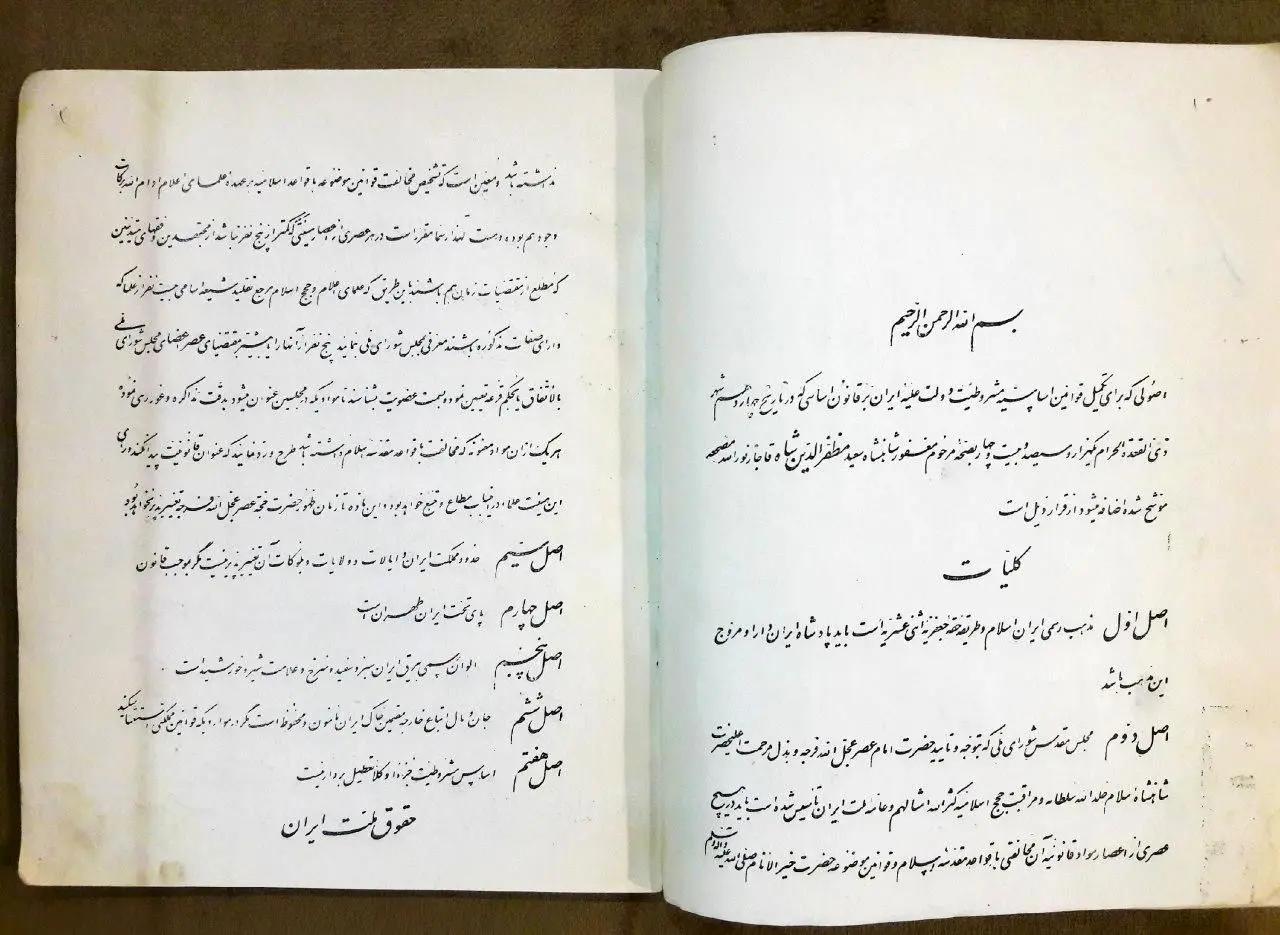 بسم الله الرحمن الرحیم
اصولی که برای تکمیل قوانین اساسیه مشروطیت دولت علیه ایران بر قانون اساسی که در تاریخ چهاردهم شهر
ذی القعدة الحرام یکهزار و سیصد و بیست و چهار بصحه مرحوم مغفور شاهنشاه سعید مظفرالدین شاه قاجار نورالله مضجعه
موشح شده اضافه میشود از قرار ذیل است
کلیات
اصل اول مذهب رسمی ایران اسلام و طریقه حقه جعفریه اثنی عشریه است باید پادشاه ایران دارا و مروج
این مذهب باشد
اصل دوم مجلس مقدس شورای ملی که بتوجه و تایید حضرت امام عصر عجل الله فرجه و بذل مرحمت اعلیحضرت
شاهنشاه اسلام خلد الله سلطانه و مراقبت حجج اسلامیه کثر الله امثالهم و عامه ملت ایران تاسیس شده است باید در هیچ
عصری از اعصار مواد قانونیه آن مخالفتی با قواعد مقدسه اسلام و قوانین موضوعه حضرت خیر الانام صلی الله علیه و اله و سلم
نداشته باشد و معین است که تشخیص مخالفت قوانین موضوعه با قواعد اسلامیه بر عهده علمای اعلام ادام الله برکات
وجودهم بوده و هست لهذا رسما مقرر است در هر عصری از اعصار هیئتی که کمتر از پنج نفر نباشد از مجتهدین و فقهای متدینین
که مطلع از مقتضیات زمان هم باشند باین طریق که علمای اعلام و حجج اسلام مرجع تقلید شیعه اسامی بیست نفر از علما که
دارای صفات مذکوره باشند معرفی بمجلس شورای ملی نمایند پنج نفر از آنها را یا بیشتر بمقتضای عصر اعضای مجلس شورای ملی
بالاتفاق یا بحکم قرعه تعیین نموده و بسمت عضویت بشناسند تا موادیکه در مجلسین عنوان میشود بدقت مذاکره و غوررسی نموده
هر یک از آن مواد معنونه که مخالفت با قواعد مقدسه اسلام داشته باشد طرح و رد نمایند که عنوان قانونیت پیدا نکند و رای
این هیئت علماء در اینباب مطاع و متبع خواهد بود و این ماده تا زمان ظهور حضرت حجة عصر عجل الله فرجه تغییر پذیر نخواهد بود
اصل سیم حدود مملکت ایران و ایالات و ولایات و بلوکات آن تغییر پذیر نیست مگر بموجب قانون
اصل چهارم پای تخت ایران طهران است
اصل پنجم الوان رسمی بیرق ایران سبز و سفید و سرخ و علامت شیر و خورشید است
اصل ششم جان و مال اتباع خارجه مقیمین خاک ایران مامون و محفوظ است مگر در مواردیکه قوانین مملکتی استثنا میکند
اصل هفتم اساس مشروطیت جزءا و کلا تعطیل بردار نیست
حقوق ملت ایران